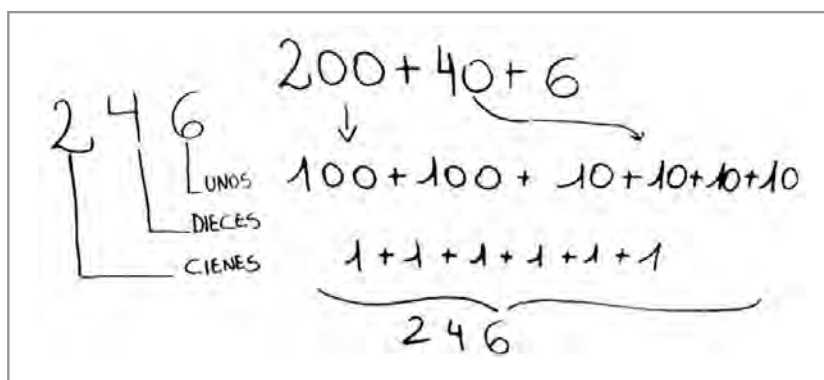 246
UNOS
DIECES
CIENES
200+40+6
100+100+ 10+10+10+10
1+1+1+1+1+1
246